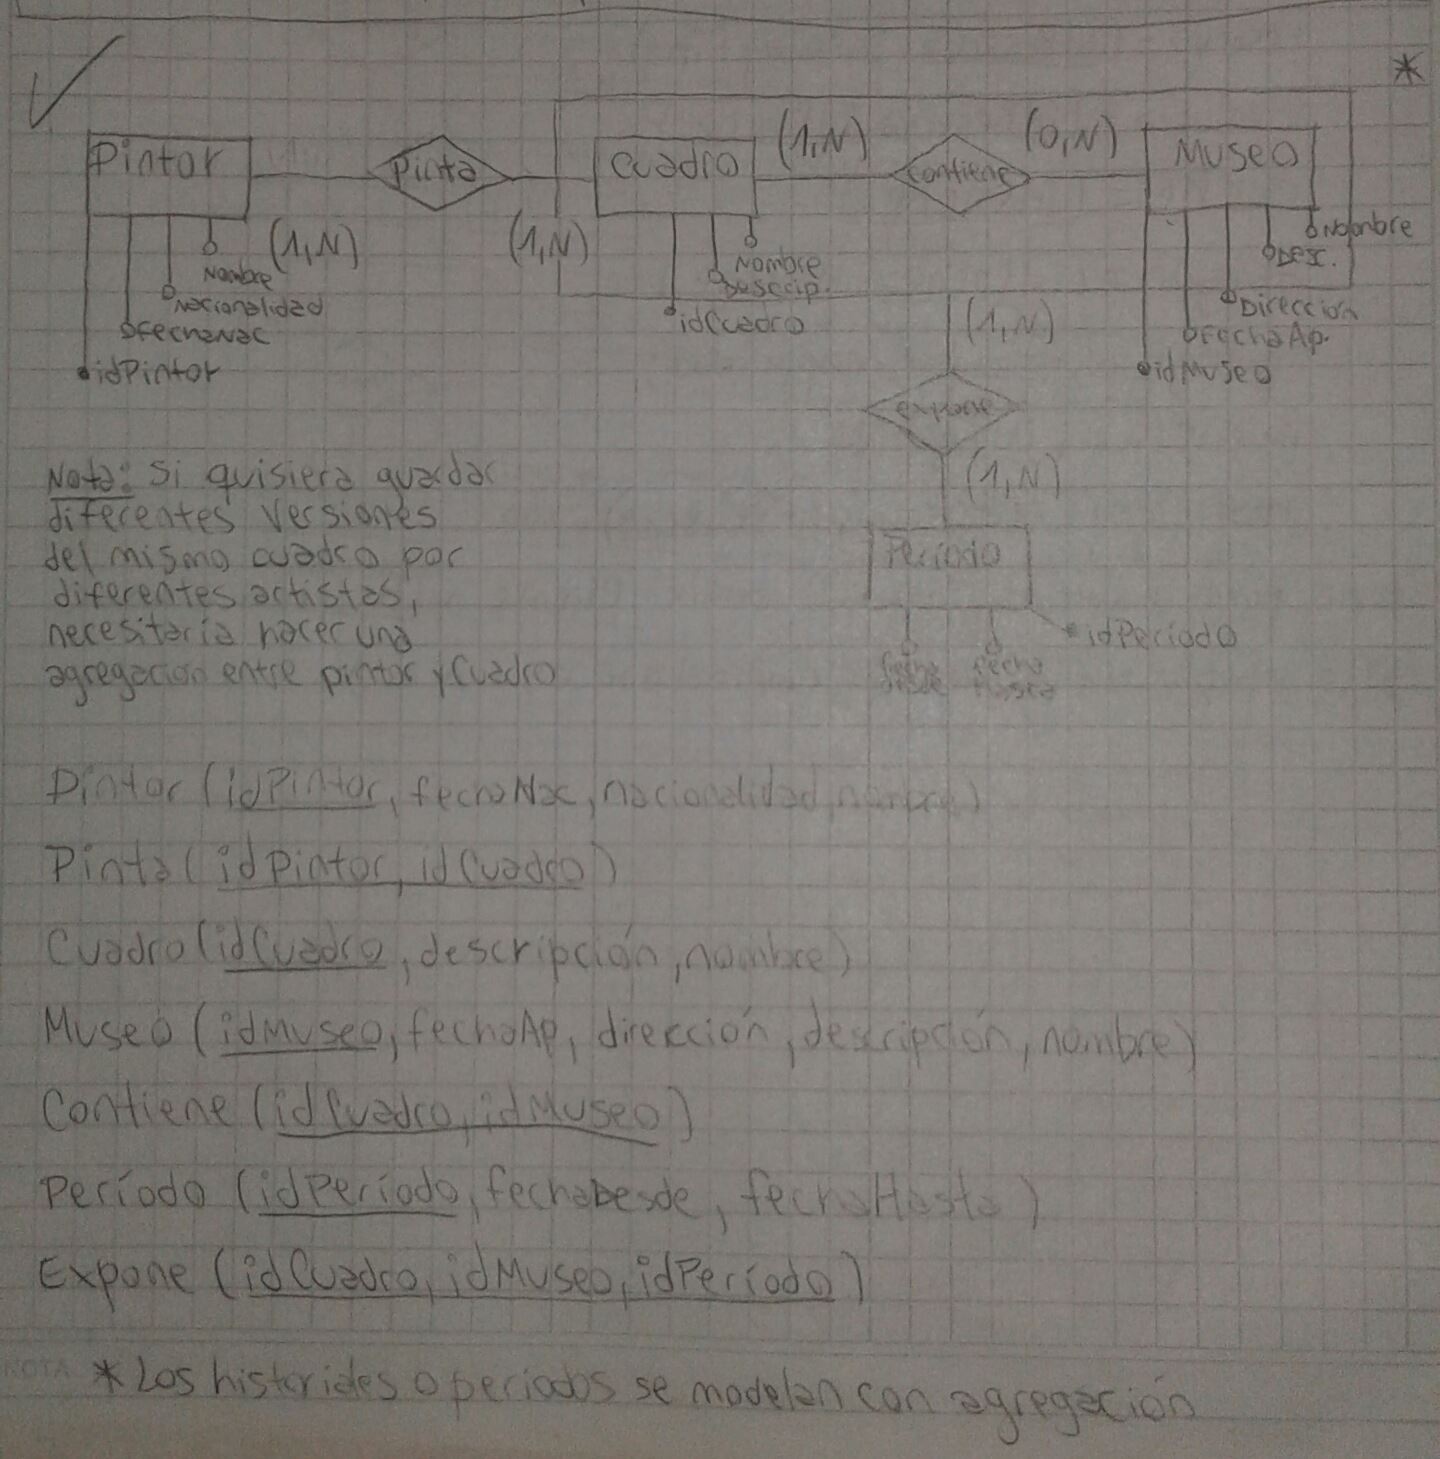 *
Pintor
Pinta
Cuadro
(1,N)
contiene
(0,N)
Museo
(1,N)
(1,N)
Nombre
Nacionalidad
FechaNac
idPintor
Nombre
Descrip.
idCuadro
Nombre
Desc.
Dirección
FechaAp.
idMuseo
(1,N)
expone
(1,N)
Período
idPeríodo
fecha desde
fecha Hasta
Nota: Si quisiera guardar
diferentes versiones
del mismo cuadro por
diferentes artistas,
necesitaría hacer una
agregación entre pintor y Cuadro
Pintor (idPintor, fechaNac, nacionalidad, nombre)
Pinta (idPintor, idCuadro)
Cuadro (idCuadro, descripción, nombre)
Museo (idMuseo, fechaAp, dirección, descripción, nombre)
Contiene (idCuadro, idMuseo)
Período (idPeríodo, fechaDesde, fechaHasta)
Expone (idCuadro, idMuseo, idPeríodo)
NOTA
* Los historiales o periodos se modelan con agregación